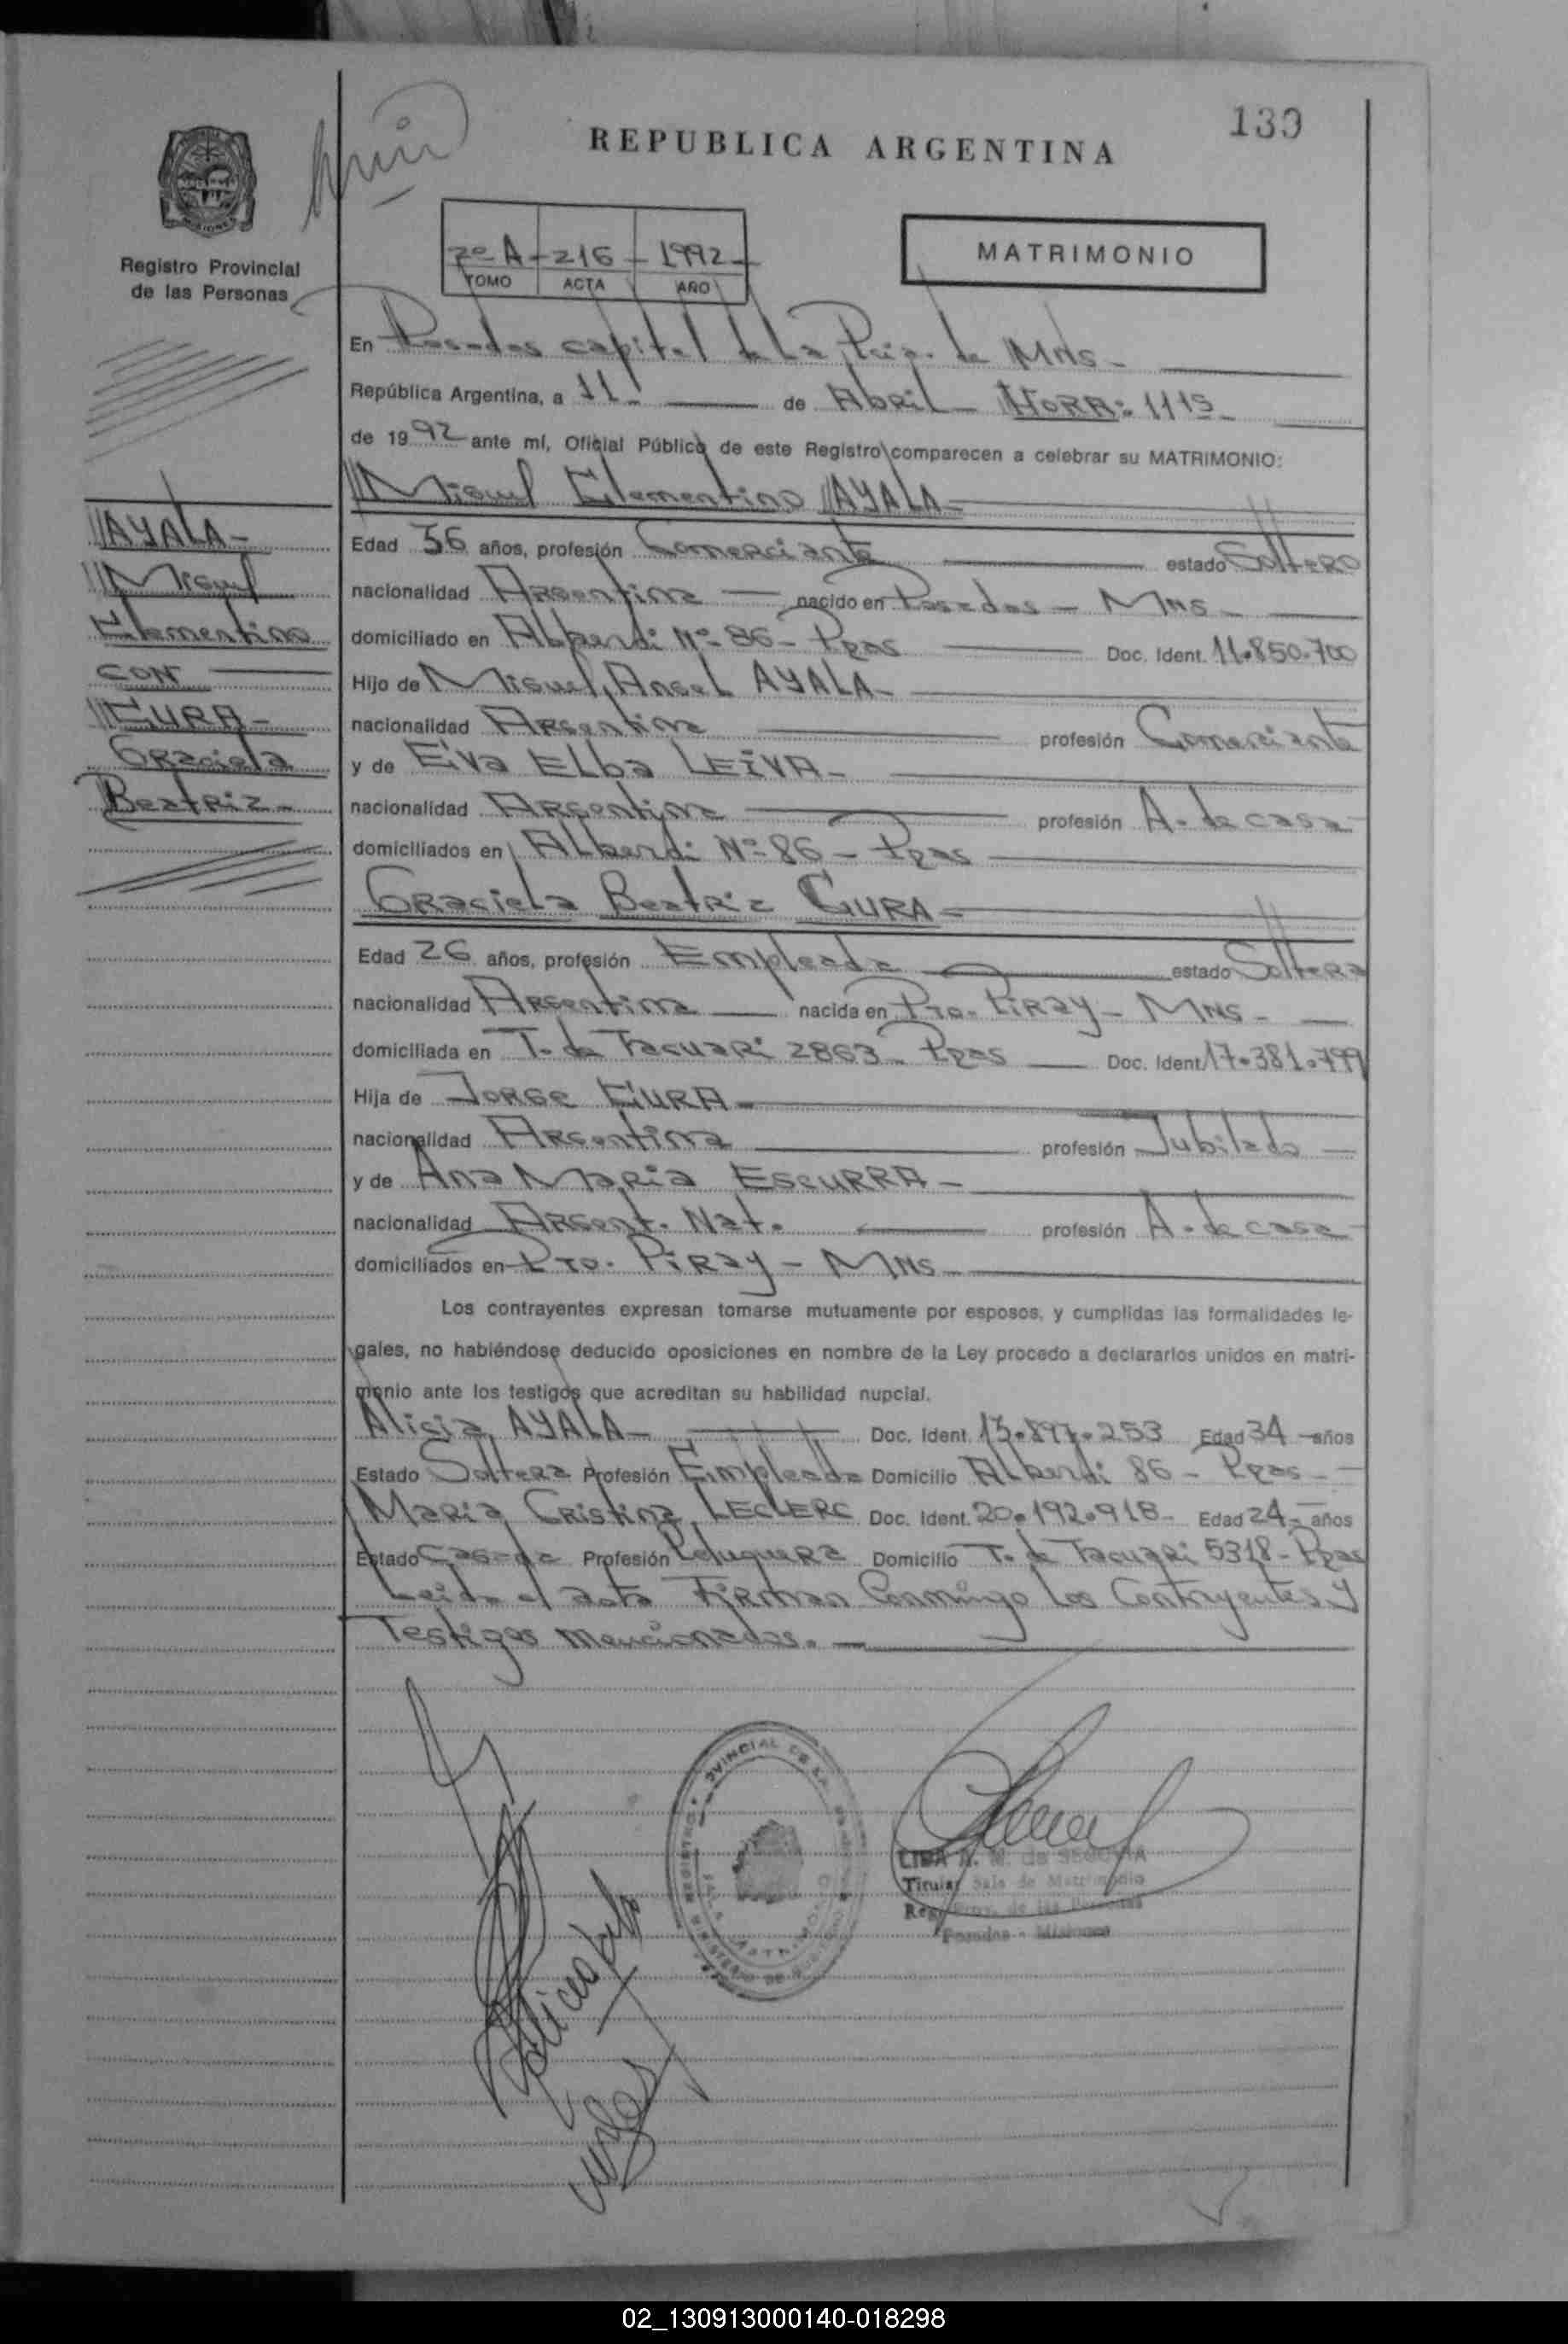 139
REPUBLICA ARGENTINA
Registro Provincial
de las Personas
2º A - 216 - 1992 -
TOMO ACTA AÑO
MATRIMONIO
En Posadas capital de La Pcia. de Mns -
República Argentina, a 11.- de Abril - HORA: 1115 -
de 1992 ante mí, Oficial Público de este Registro comparecen a celebrar su MATRIMONIO:
Miguel Clementino AYALA -
AYALA -
Miguel
Clementino
CON
CURA -
Graciela
Beatriz -
Edad 36 años, profesión Comerciante estado Soltero
nacionalidad Argentina nacido en Posadas - Mns -
domiciliado en Alberdi Nº 86 - Ppas Doc. Ident. 11.850.700
Hijo de Miguel Angel AYALA -
nacionalidad Argentina profesión Comerciante
y de Elva Elba LEIVA -
nacionalidad Argentina profesión A. de casa
domiciliados en Alberdi Nº 86 - Ppas
Graciela Beatriz CURA -
Edad 26 años, profesión Empleada estado Soltera
nacionalidad Argentina nacida en Pto. Piray - Mns -
domiciliada en T. de Tacuari 2863 - Ppas Doc. Ident. 17.381.799
Hija de Jorge CURA -
nacionalidad Argentina profesión Jubilado
y de Ana Maria ESCURRA -
nacionalidad Argent. Nat. profesión A. de casa
domiciliados en Pto. Piray - Mns -
Los contrayentes expresan tomarse mutuamente por esposos, y cumplidas las formalidades le-
gales, no habiéndose deducido oposiciones en nombre de la Ley procedo a declararlos unidos en matri-
monio ante los testigos que acreditan su habilidad nupcial.
Alicia AYALA - Doc. Ident. 13.897.253 Edad 34 - años
Estado Soltera Profesión Empleada Domicilio Alberdi 86 - Ppas -
Maria Cristina LECLERC Doc. Ident. 20.192.918 - Edad 24 - años
Estado Casada Profesión Peluquera Domicilio T. de Tacuari 5318 - Ppas
Leida el acta Firman Conmigo los Contrayentes y
Testigos mencionados. -
LIDA de SEGOVIA
Titular Sala de Matrimonio
Reg. Prov. de las Personas
Posadas - Misiones
02_130913000140-018298